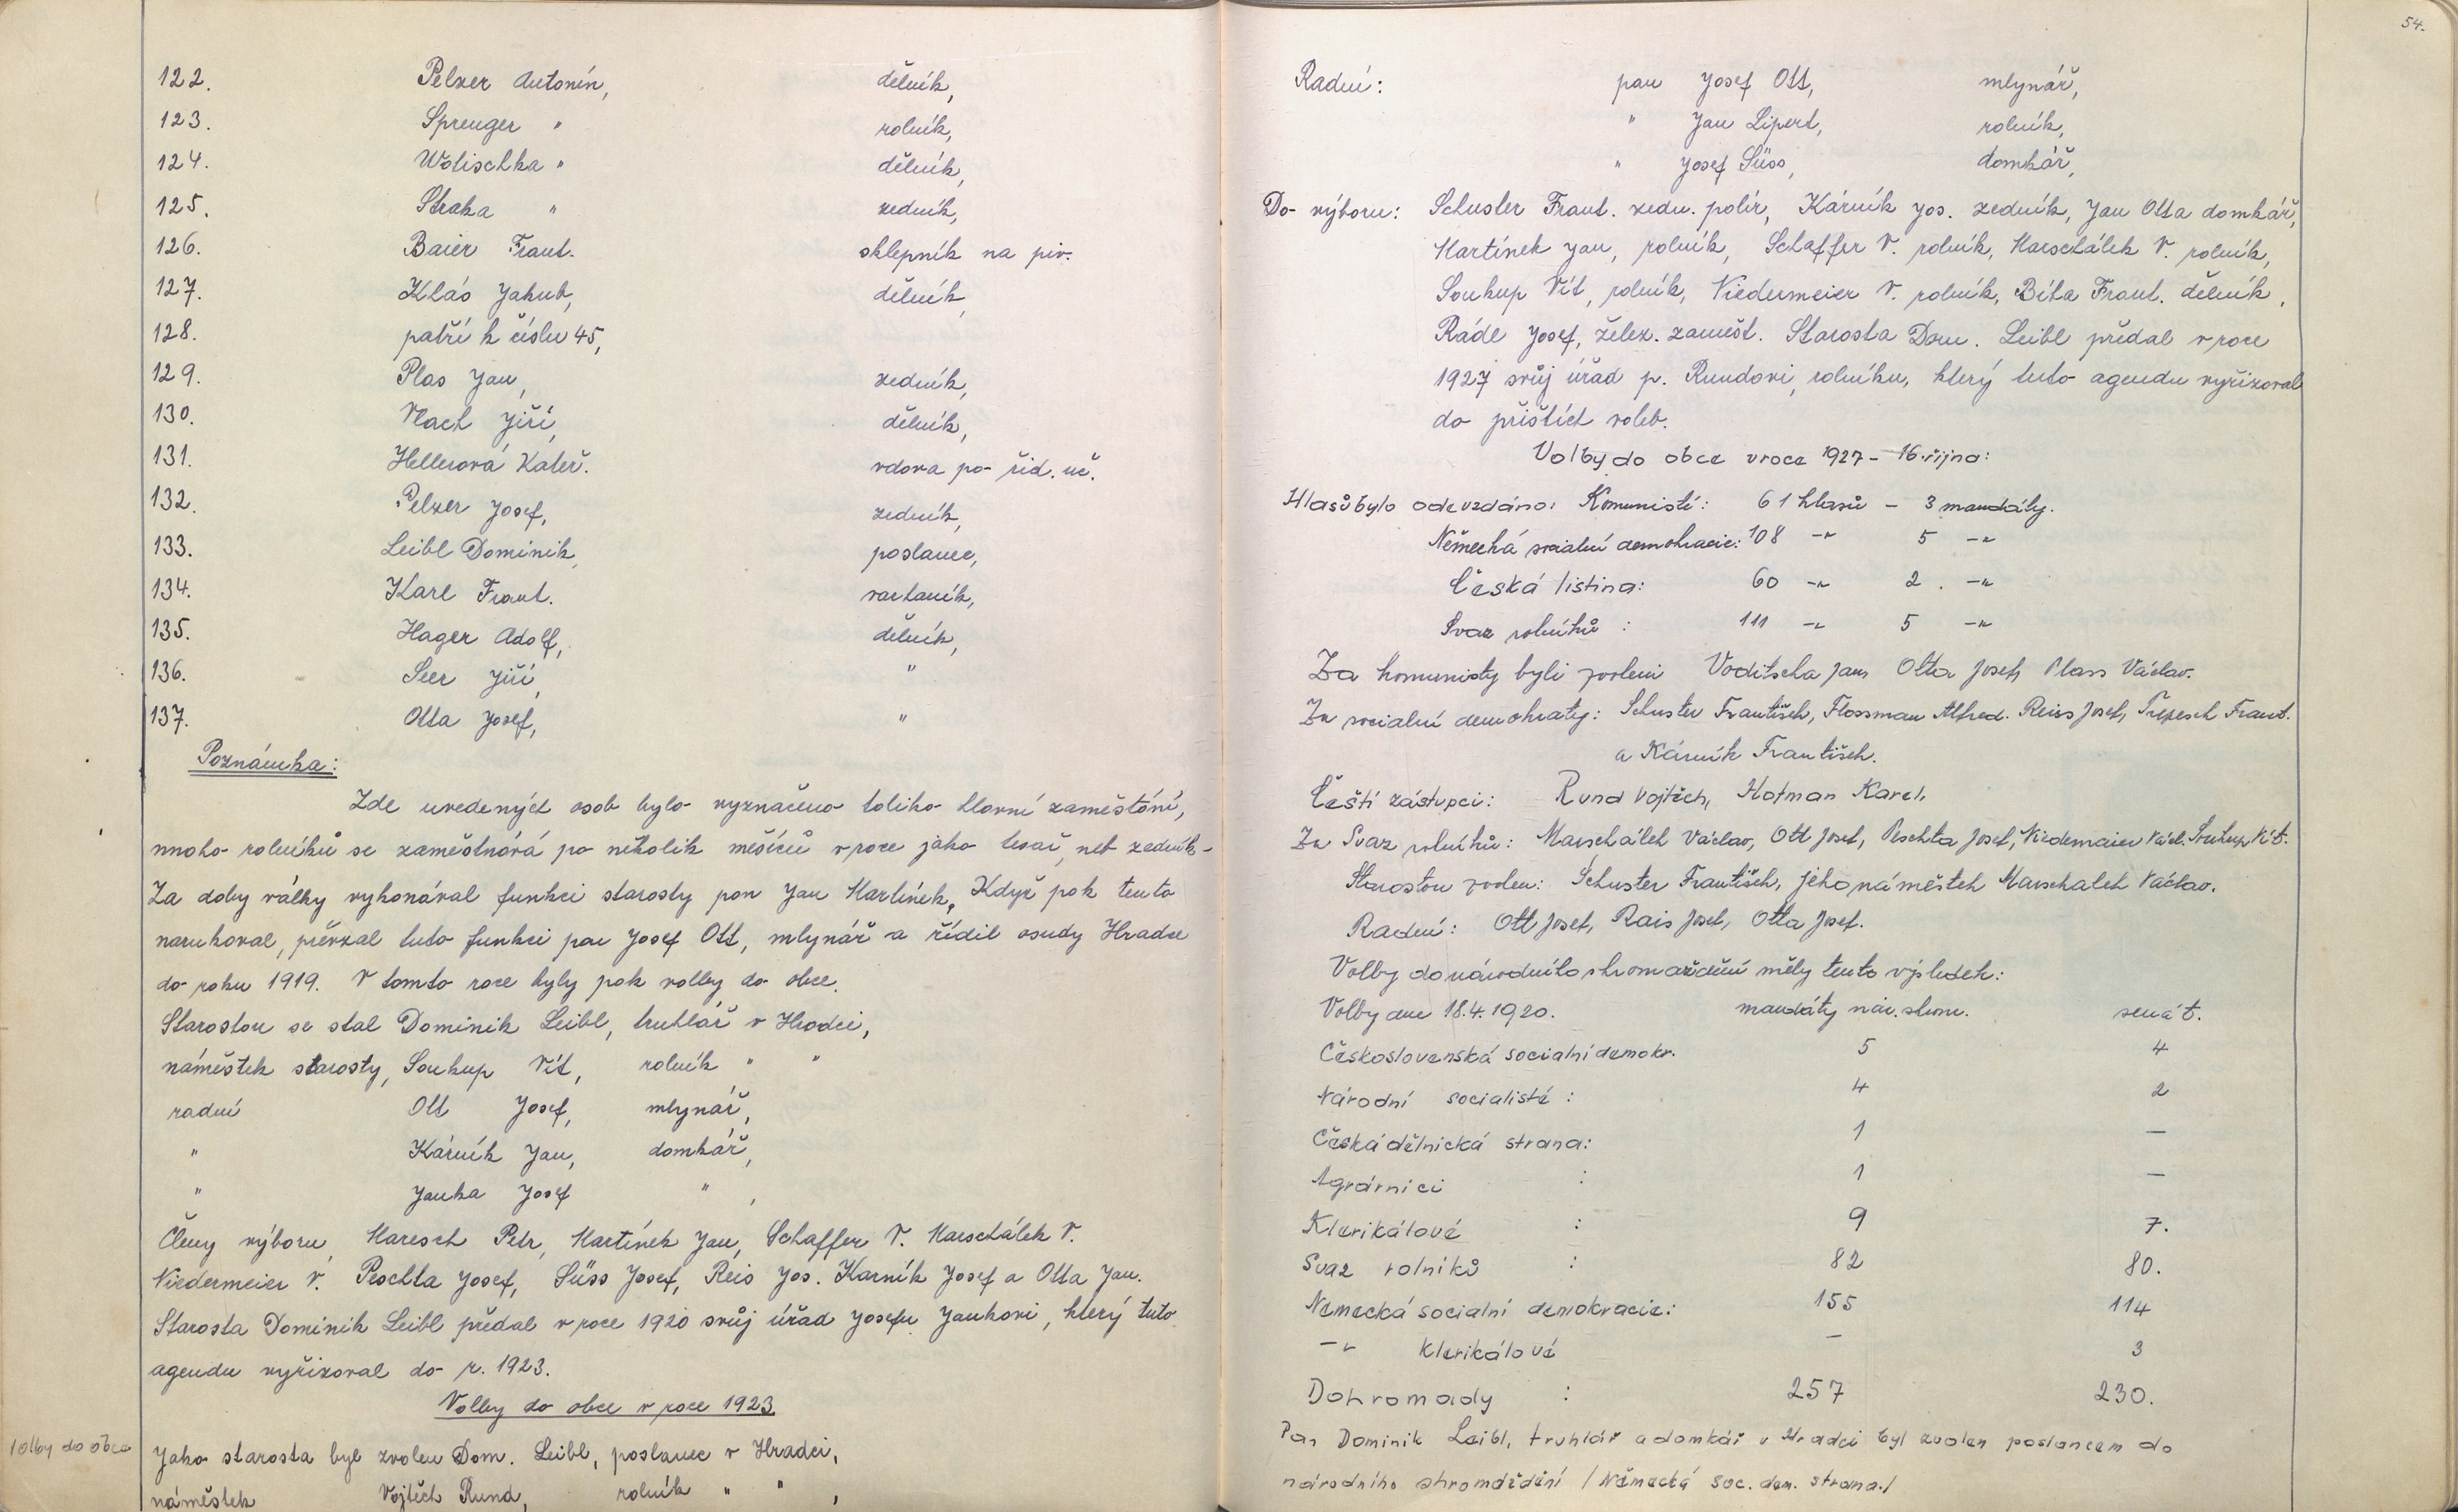 122. Pelzer Antonín, dělník,
123. Sprenger " rolník,
124. Wotischka " dělník,
125. Straka " zedník,
126. Baier Frant. sklepník na piv.
127. Klás Jakub, dělník,
128. patří k číslu 45,
129. Plas Jan, zedník,
130. Vlach Jiří, dělník,
131. Hellerová Kateř. vdova po říd. uč.
132. Pelzer Josef, zedník,
133. Leibl Dominik, poslanec,
134. Karl Frant. varhaník,
135. Hager Adolf, dělník,
136. Seer Jiří, "
137. Otta Josef, "
Poznámka:
Zde uvedených osob bylo vyznačeno toliko hlavní zaměstání,
mnoho rolníků se zaměstnává po několik měsíců v roce jako tesař, neb zedník-
Za doby války vykonával funkci starosty pan Jan Martínek, Když pak tento
narukoval, převzal tuto funkci pan Josef Ott, mlynář a řídil osudy Hradce
do roku 1919. V tomto roce byly pak volby do obce.
Starostou se stal Dominik Leibl, truhlář v Hradci,
náměstek starosty, Soukup Vít, rolník " "
radní Ott Josef, mlynář,
" Kárník Jan, domkář,
" Janka Josef " ,
Členy výboru, Maresch Petr, Martínek Jan, Schaffer V. Marschálek V.
Niedermeier V. Peschta Josef, Süss Josef, Reis Jos. Karník Josef a Otta Jan.
Starosta Dominik Leibl předal v roce 1920 svůj úřad Josefu Jankovi, který tuto
agendu vyřizoval do r. 1923.
Volby do obce v roce 1923
Volby do obce
Jako starosta byl zvolen Dom. Leibl, poslanec v Hradci,
náměstek Vojtěch Rund, rolník " " ,
54.
Radní: pan Josef Ott, mlynář,
" Jan Lipert, rolník,
" Josef Süss, domkář,
Do výboru: Schuster Frant. zedn. polír, Kárník Jos. zedník, Jan Otta domkář,
Martínek Jan, rolník, Schaffer V. rolník, Marschálek V. rolník,
Soukup Vít, rolník, Niedermeier V. rolník, Bíba Frant. dělník,
Rádl Josef, želez. zaměst. Starosta Dom. Leibl předal v roce
1927 svůj úřad p. Rundovi, rolníku, který tuto agendu vyřizoval
do příštích voleb.
Volby do obce v roce 1927 - 16. října:
Hlasů bylo odevzdáno: Komunisté: 61 hlasů - 3 mandáty.
Německá sociální demokracie: 108 -"- 5 -"-
Česká listina: 60 -"- 2. -"-
Svaz rolníků : 111 -"- 5 -"-
Za komunisty byli zvoleni Voditscha Jan, Otta Josef, Plass Václav.
Za sociální demokraty: Schuster František, Flossman Alfred. Reiss Josef, Frant.
a Kárník František.
Čeští zástupci: Rund Vojtěch, Hofman Karel,
Za Svaz rolníků: Marschálek Václav, Ott Josef, Peschta Josef, Niedemaier Václ. Soukup Vít.
Starostou zvolen: Schuster František, jeho náměstek Marschalek Václav.
Radní: Ott Josef, Rais Josef, Otta Josef.
Volby do národního shromáždění měly tento výsledek:
Volby dne 18.4.1920. mandáty nár. shrom. senát.
Československá socialní demokr. 5 4
Národní socialisté : 4 2
Česká dělnická strana: 1 —
Agrárníci : 1 —
Klerikálové : 9 7.
Svaz rolníků : 82 80.
Německá socialní demokracie: 155 114
-"- klerikálové — 3
Dohromady : 257 230.
Pan Dominik Leibl, truhlář a domkář v Hradci byl zvolen poslancem do
národního shromáždění /Německá soc. dem. strana./